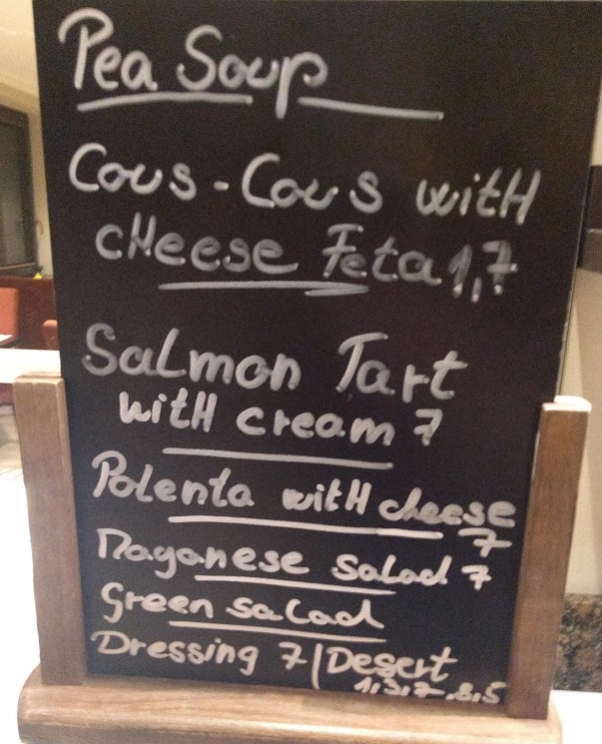 Pea Soup
Cous-Cous witH
cHeese Feta 1,7
Salmon Tart
witH cream 7
Polenta witH cheese
7
Mayanese salad 7
Green salad
Dressing 7|Desert
1,3,7,8,5